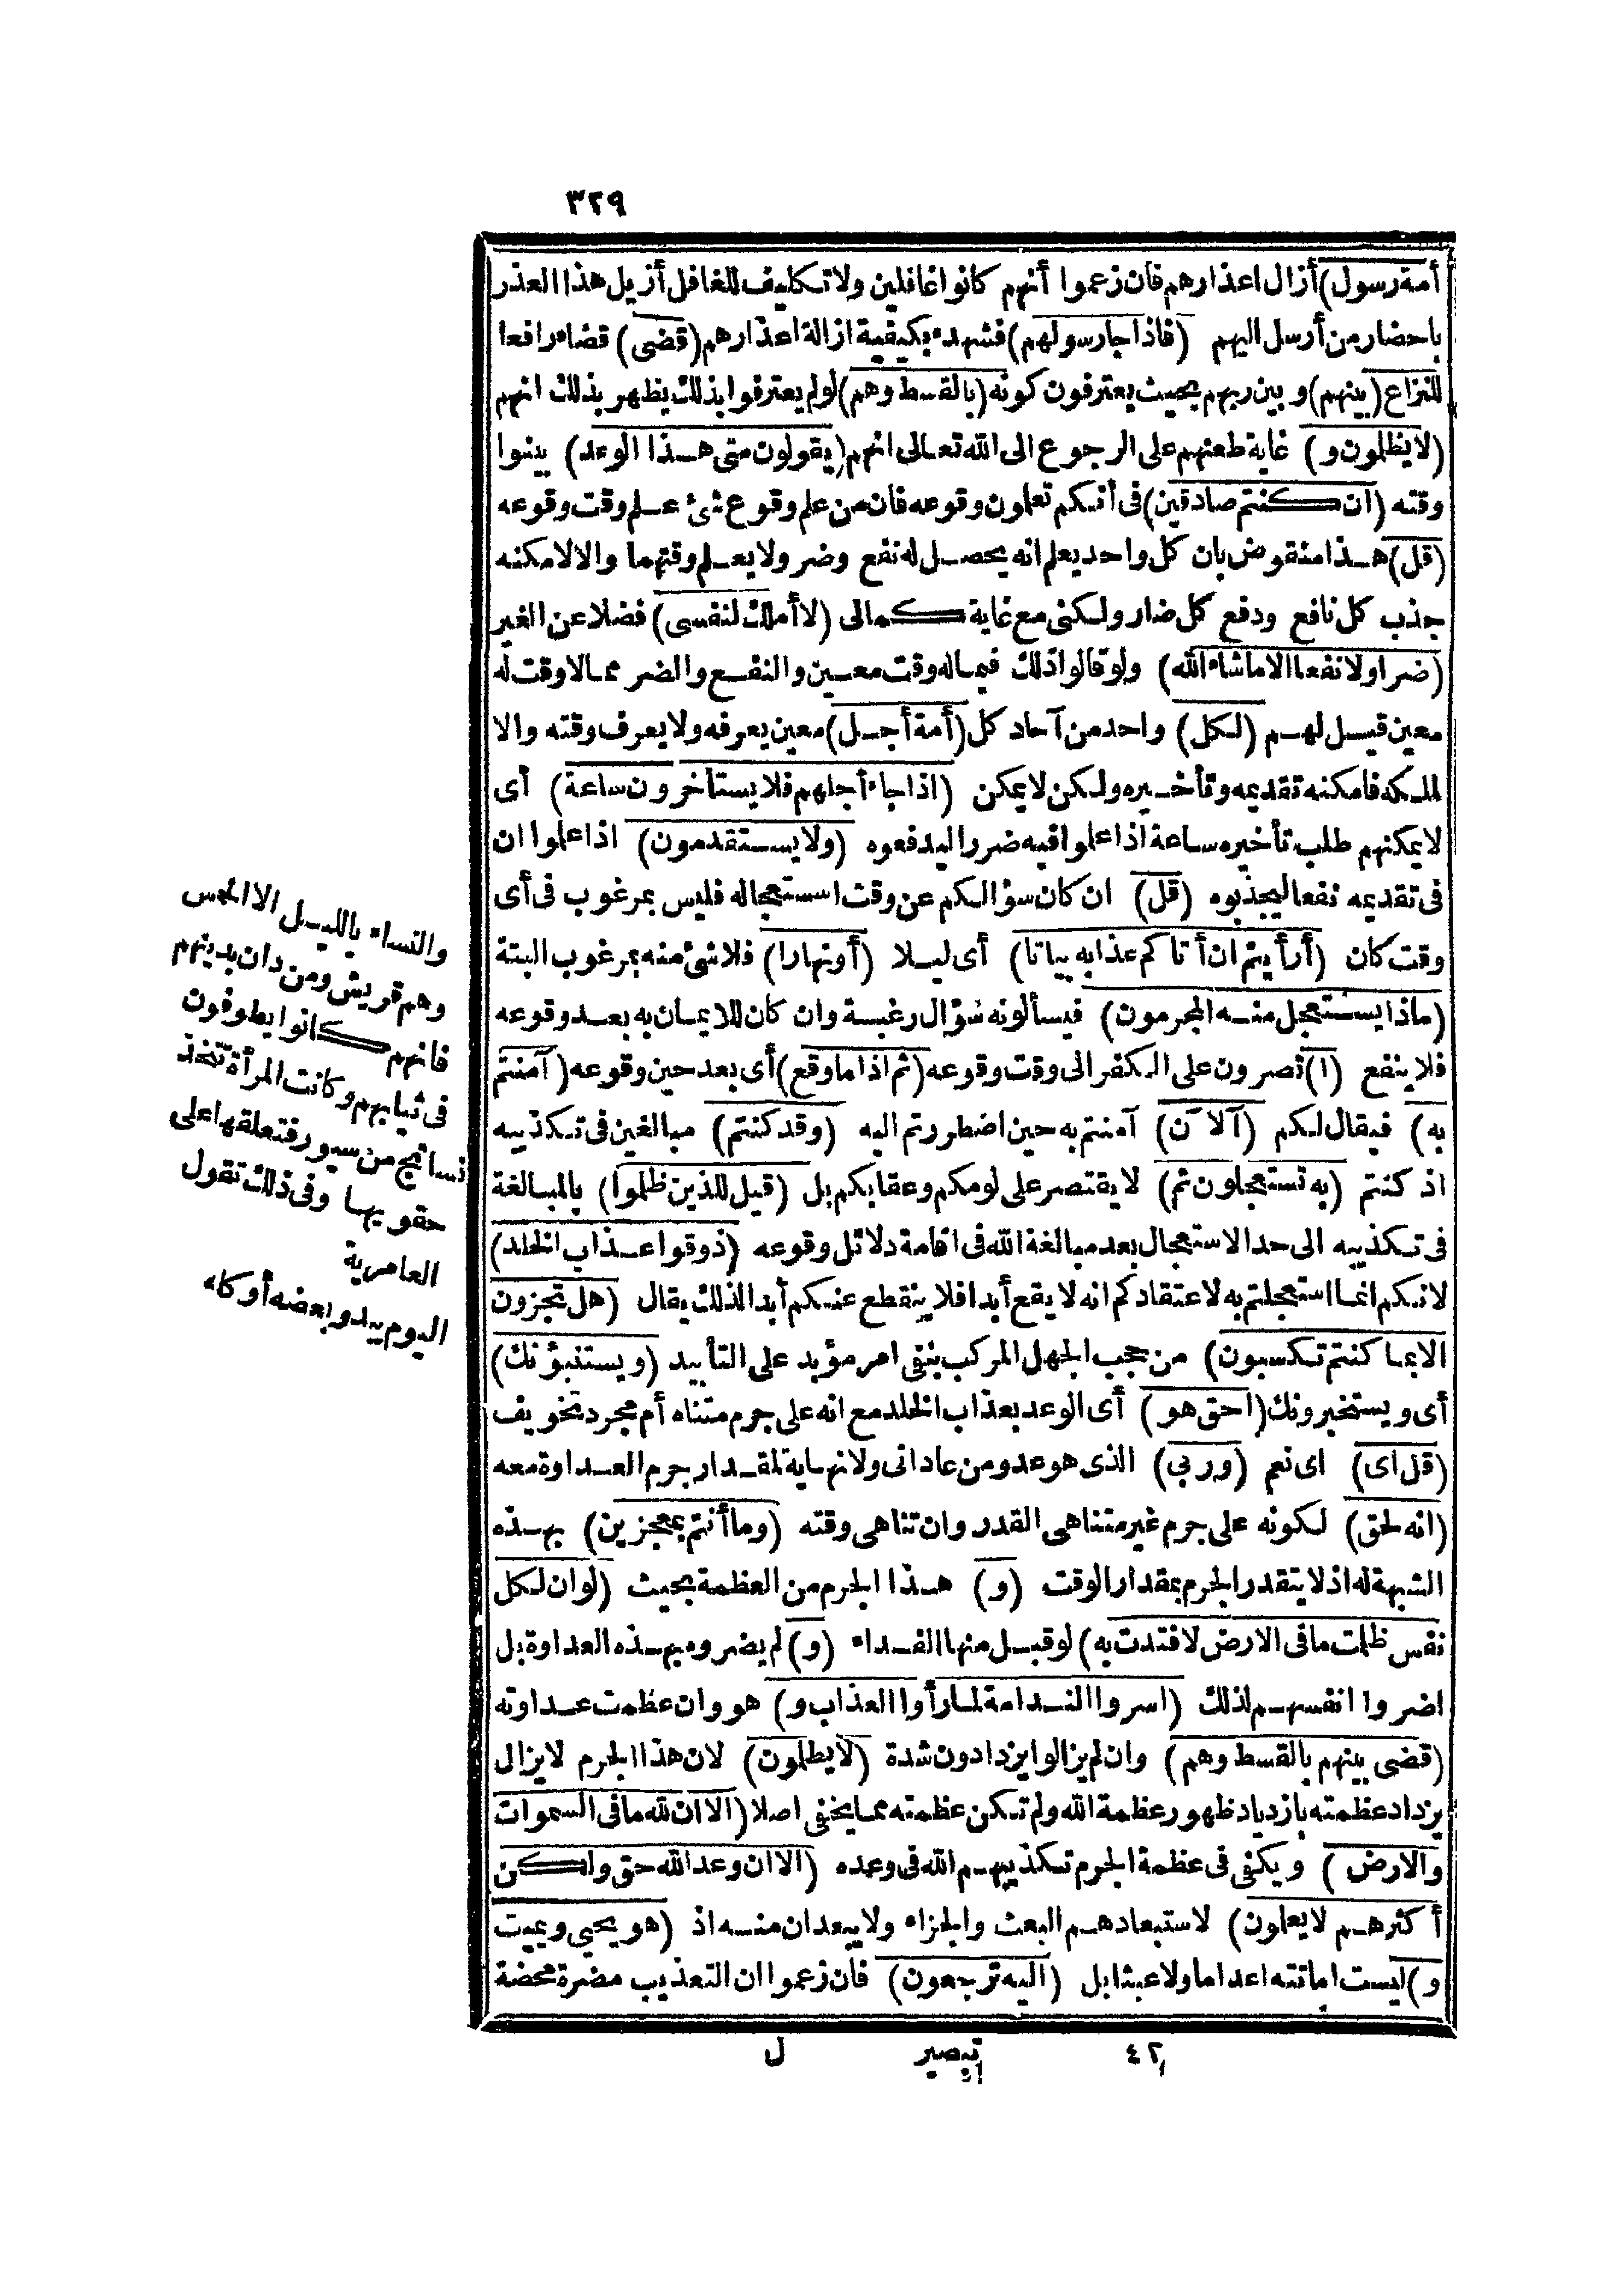 ٣٢٩
أمة رسول) أزال اعذارهم فان زعموا أنهم كانوا غافلين ولا تكليف للغافل أزيل هذا العذر
باحضار من أرسل اليهم (فاذا جاء رسولهم) فشهد بكيفية ازالة اعذارهم (قضى) قضاء رافعا
للنزاع (بينهم) وبين ربهم بحيث يعترفون كونه (بالقسط وهم) لو لم يعترفوا بذلك يظهر بذلك انهم
(لا يظلمون و) غاية طعنهم على الرجوع الى الله تعالى انهم (يقولون متى هذا الوعد) بينوا
وقته (ان كنتم صادقين) فى أنكم تعلمون وقوعه فان من علم وقوع شئ علم وقت وقوعه
(قل) هذا منقوض بان كل واحد يعلم انه يحصل له نفع وضر ولا يعلم وقتهما والا لامكنه
جذب كل نافع ودفع كل ضار ولكنى مع غاية كمالى (لا أملك لنفسى) فضلا عن الغير
(ضرا ولا نفعا الا ما شاء الله) ولو قالوا ذلك فيما له وقت معين والنفع والضر مما لا وقت له
معين قيل لهم (لكل) واحد من آحاد كل (أمة أجل) معين يعرفه ولا يعرف وقته والا
لملكه فامكنه تقديمه وتأخيره ولكن لا يمكن (اذا جاء أجلهم فلا يستأخرون ساعة) أى
لا يمكنهم طلب تأخيره ساعة اذا علموا فيه ضررا ليدفعوه (ولا يستقدمون) اذا علموا ان
فى تقديمه نفعا ليجذبوه (قل) ان كان سؤالكم عن وقت استعجاله فليس بمرغوب فى أى
وقت كان (أرأيتم ان أتاكم عذابه بياتا) أى ليلا (أو نهارا) فلا شئ منه بمرغوب البتة
(ماذا يستعجل منه المجرمون) فيسألونه سؤال رغبة وان كان للايمان به بعد وقوعه
فلا ينفع (ا) تصرون على الكفر الى وقت وقوعه (ثم اذا ما وقع) أى بعد حين وقوعه (آمنتم
به) فيقال لكم (آلآن) آمنتم به حين اضطررتم اليه (وقد كنتم) مبالغين فى تكذيبه
اذ كنتم (به تستعجلون ثم) لا يقتصر على لومكم وعقابكم بل (قيل للذين ظلموا) بالمبالغة
فى تكذيبه الى حد الاستعجال بعد مبالغة الله فى اقامة دلائل وقوعه (ذوقوا عذاب الخلد)
لانكم انما استعجلتم به لاعتقادكم انه لا يقع أبدا فلا ينقطع عنكم أبدا لذلك يقال (هل تجزون
الا بما كنتم تكسبون) من حجب الجهل المركب بنفى امر مؤبد على التأبيد (ويستنبؤنك)
أى ويستخبرونك (احق هو) أى الوعد بعذاب الخلد مع انه على جرم متناه أم مجرد تخويف
(قل اى) اى نعم (وربي) الذى هو عدو من عادانى ولا نهاية لمقدار جرم العداوة معه
(انه لحق) لكونه على جرم غير متناهى القدر وان تناهى وقته (وما أنتم بمعجزين) بهذه
الشبهة له اذ لا يتقدر الجرم بمقدار الوقت (و) هذا الجرم من العظمة بحيث (لو ان لكل
نفس ظلمت ما فى الارض لافتدت به) لو قبل منها الفداء (و) لم يضروه بهذه العداوة بل
اضروا انفسهم لذلك (اسروا الندامة لما رأوا العذاب و) هو وان عظمت عداوته
(قضى بينهم بالقسط وهم) وان لم يزالوا يزدادون شدة (لا يظلمون) لان هذا الجرم لا يزال
يزداد عظمته بازدياد ظهور عظمة الله ولم تكن عظمته مما يخفى اصلا (الا ان لله ما فى السموات
والارض) ويكفى فى عظمة الجرم تكذيبهم الله فى وعده (الا ان وعد الله حق ولكن
أكثرهم لا يعلمون) لاستبعادهم البعث والجزاء ولا يبعدان منه اذ (هو يحيى ويميت
و) ليست اماتته اعداما ولا عبثا بل (اليه ترجعون) فان زعموا ان التعذيب مضرة محضة
والنساء بالليل الا الحمس
وهم قريش ومن دان بدينهم
فانهم كانوا يطوفون
فى ثيابهم وكانت المرأة تتخذ
نسائج من سيور فتعلقها على
حقويها وفى ذلك تقول
العامرية
اليوم يبدو بعضه أو كله
٤٢ تبصير ل